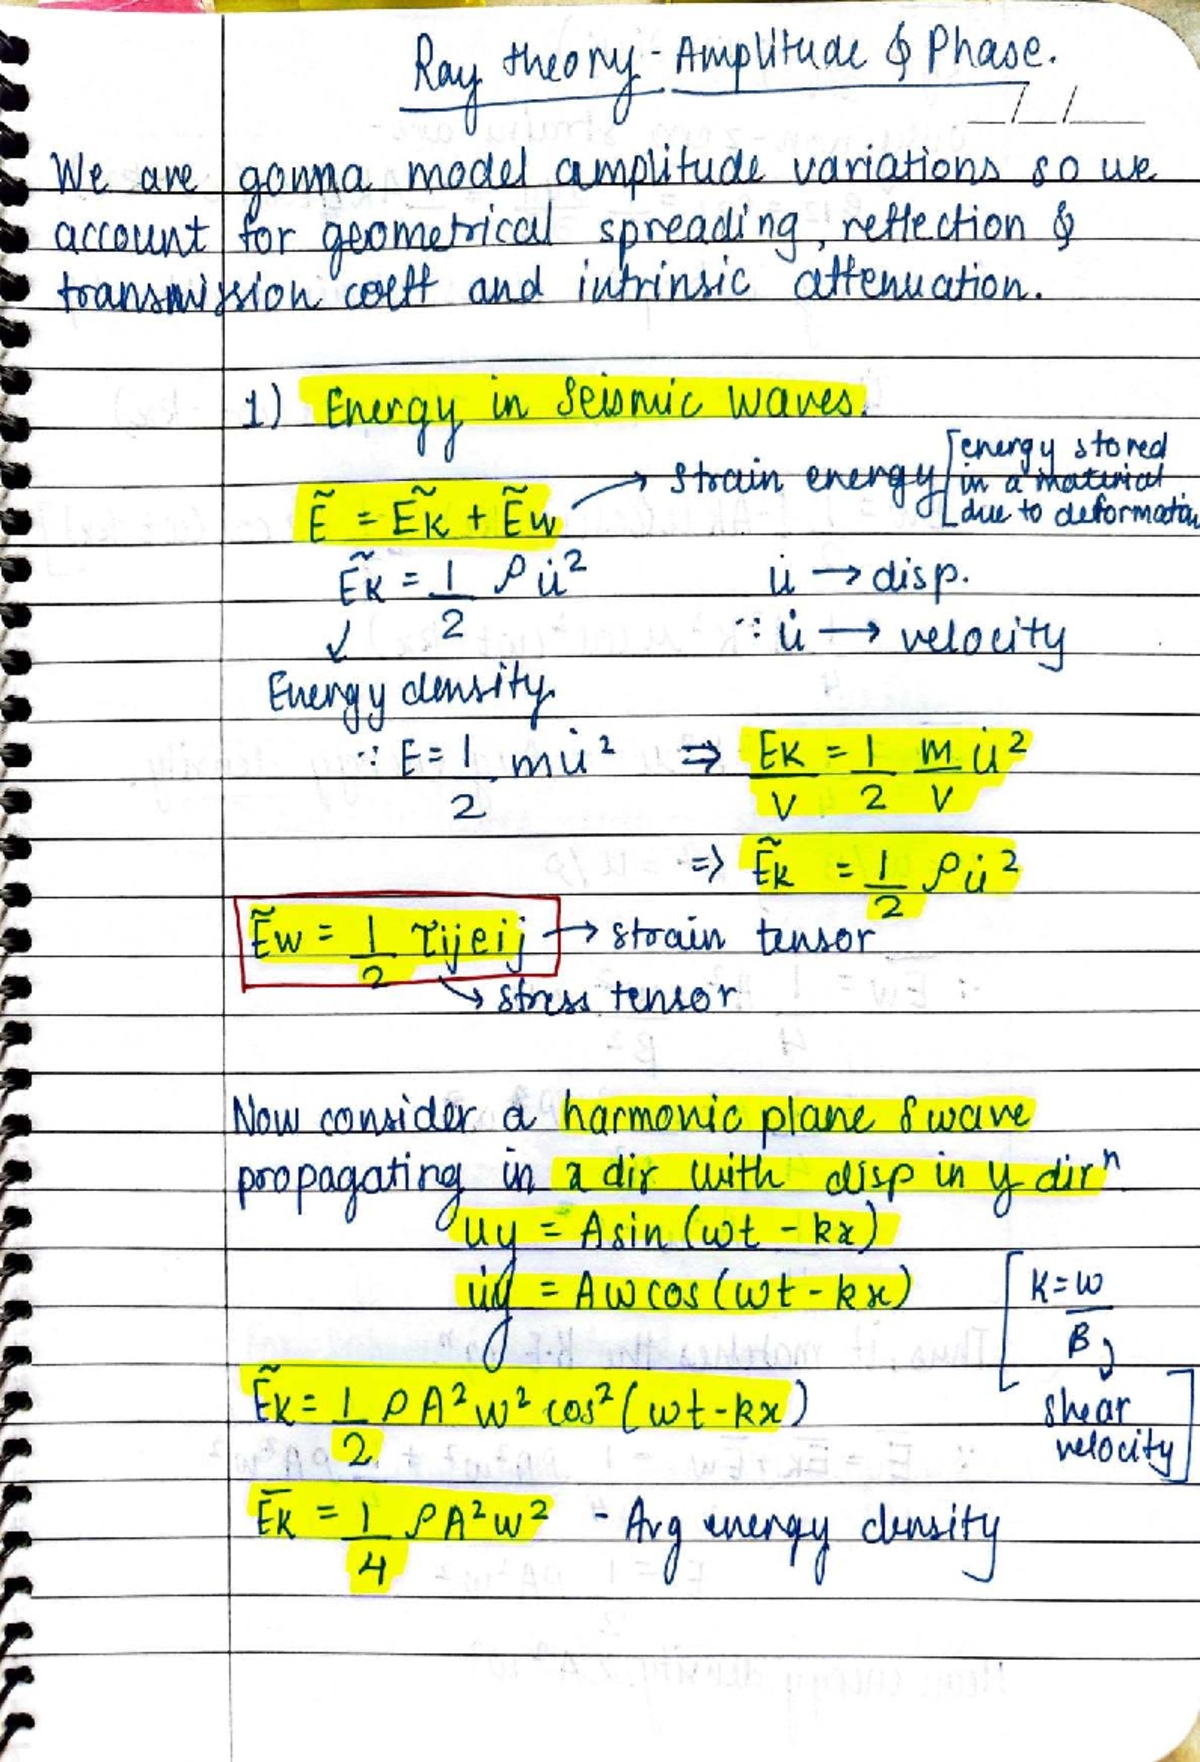 Ray theory - Amplitude & Phase.
We are gonna model amplitude variations so we
account for geometrical spreading, reflection &
transmission coeff and intrinsic attenuation.
1) Energy in Seismic Waves.
Ẽ = Ẽk + Ẽw → strain energy [energy stored
in a material
due to deformation
Ẽk = 1/2 ρu̇² u → disp.
∵ u̇ → velocity
Energy density
∵ E = 1/2 mu̇² ⇒ Ek/V = 1/2 m/V u̇²
⇒ Ẽk = 1/2 ρu̇²
Ẽw = 1/2 τijeij → strain tensor
↳ stress tensor
Now consider a harmonic plane S wave
propagating in x dir with disp in y dirⁿ
uy = Asin(wt - kx)
u̇y = Aw cos(wt - kx) [K = w/β, shear
velocity]
Ẽk = 1/2 ρA²w² cos²(wt-kx)
Ēk = 1/4 ρA²w² - Avg energy density